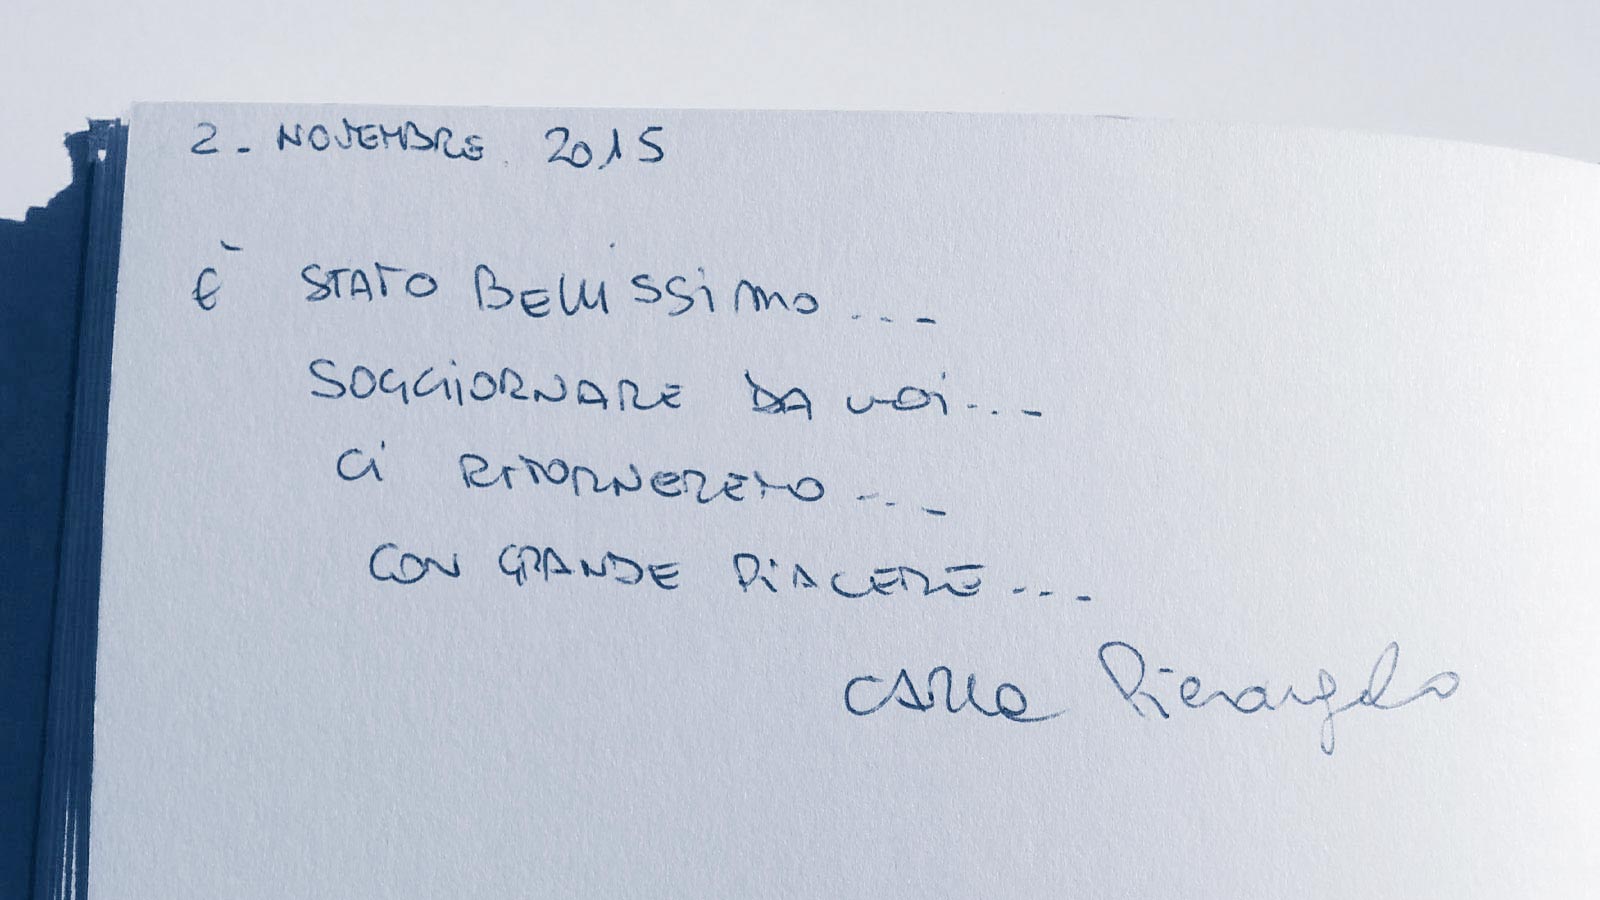 2. NOVEMBRE 2015
È STATO BELLISSIMO...
SOGGIORNARE DA VOI...
CI RITORNEREMO...
CON GRANDE PIACERE...
CARLA Pierangelo